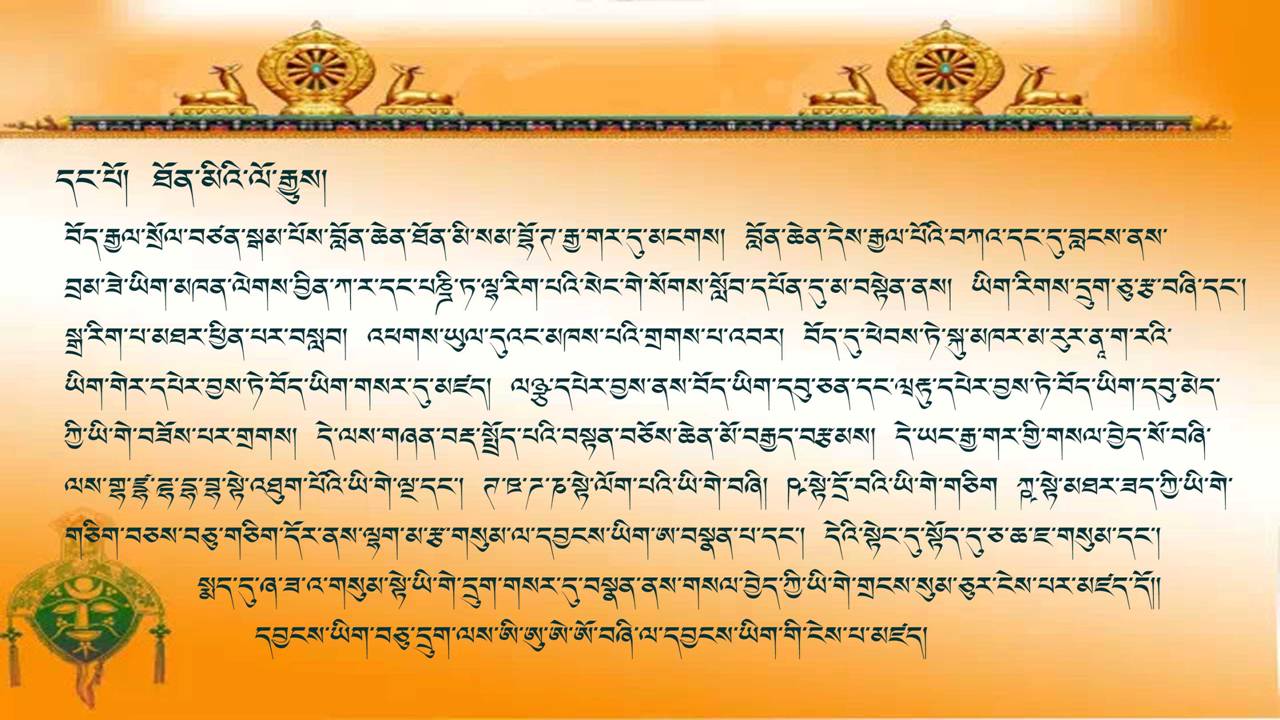 དང་པོ།  ཐོན་མིའི་ལོ་རྒྱུས།
བོད་རྒྱལ་སྲོལ་བཙན་སྒམ་པོས་བློན་ཆེན་ཐོན་མི་སམ་བྷོ་ཊ་རྒྱ་གར་དུ་མངགས།  བློན་ཆེན་དེས་རྒྱལ་པོའི་བཀའ་དང་དུ་བླངས་ནས་
བྲམ་ཟེ་ཡིག་མཁན་ལེགས་བྱིན་ཀ་ར་དང་པཎྜི་ཏ་ལྷ་རིག་པའི་སེང་གེ་སོགས་སློབ་དཔོན་དུ་མ་བསྟེན་ནས།  ཡིག་རིགས་དྲུག་ཅུ་རྩ་བཞི་དང་།
སྒྲ་རིག་པ་མཐར་ཕྱིན་པར་བསླབ།  འཕགས་ཡུལ་དུའང་མཁས་པའི་གྲགས་པ་འབར།  བོད་དུ་ཕེབས་ཏེ་སྐུ་མཁར་མ་རུར་ནཱ་ག་རའི་
ཡིག་གེར་དཔེར་བྱས་ཏེ་བོད་ཡིག་གསར་དུ་མཛད།  ལཉྩ་དཔེར་བྱས་ནས་བོད་ཡིག་དབུ་ཅན་དང་ཝརྟུ་དཔེར་བྱས་ཏེ་བོད་ཡིག་དབུ་མེད་
ཀྱི་ཡི་གེ་བཟོས་པར་གྲགས།  དེ་ལས་གཞན་བརྡ་སྤྲོད་པའི་བསྟན་བཅོས་ཆེན་མོ་བརྒྱད་བརྩམས།  དེ་ཡང་རྒྱ་གར་གྱི་གསལ་བྱེད་སོ་བཞི་
ལས་གྷ་ཛྷ་ཌྷ་དྷ་བྷ་སྟེ་འཐུག་པོའི་ཡི་གེ་ལྔ་དང་།  ཊ་ཋ་ཌ་ཎ་སྟེ་ལོག་པའི་ཡི་གེ་བཞི།  ཥ་སྟེ་དྲོ་བའི་ཡི་གེ་གཅིག  ཀྵ་སྟེ་མཐར་ཟད་ཀྱི་ཡི་གེ་
གཅིག་བཅས་བཅུ་གཅིག་དོར་ནས་ལྷག་མ་རྩ་གསུམ་ལ་དབྱངས་ཡིག་ཨ་བསྣན་པ་དང་།  དེའི་སྟེང་དུ་སྟོད་དུ་ཅ་ཆ་ཇ་གསུམ་དང་།
སྨད་དུ་ཞ་ཟ་འ་གསུམ་སྟེ་ཡི་གེ་དྲུག་གསར་དུ་བསྣན་ནས་གསལ་བྱེད་ཀྱི་ཡི་གེ་གྲངས་སུམ་ཅུར་ངེས་པར་མཛད་དོ།།
དབྱངས་ཡིག་བཅུ་དྲུག་ལས་ཨི་ཨུ་ཨེ་ཨོ་བཞི་ལ་དབྱངས་ཡིག་གི་ངེས་པ་མཛད།